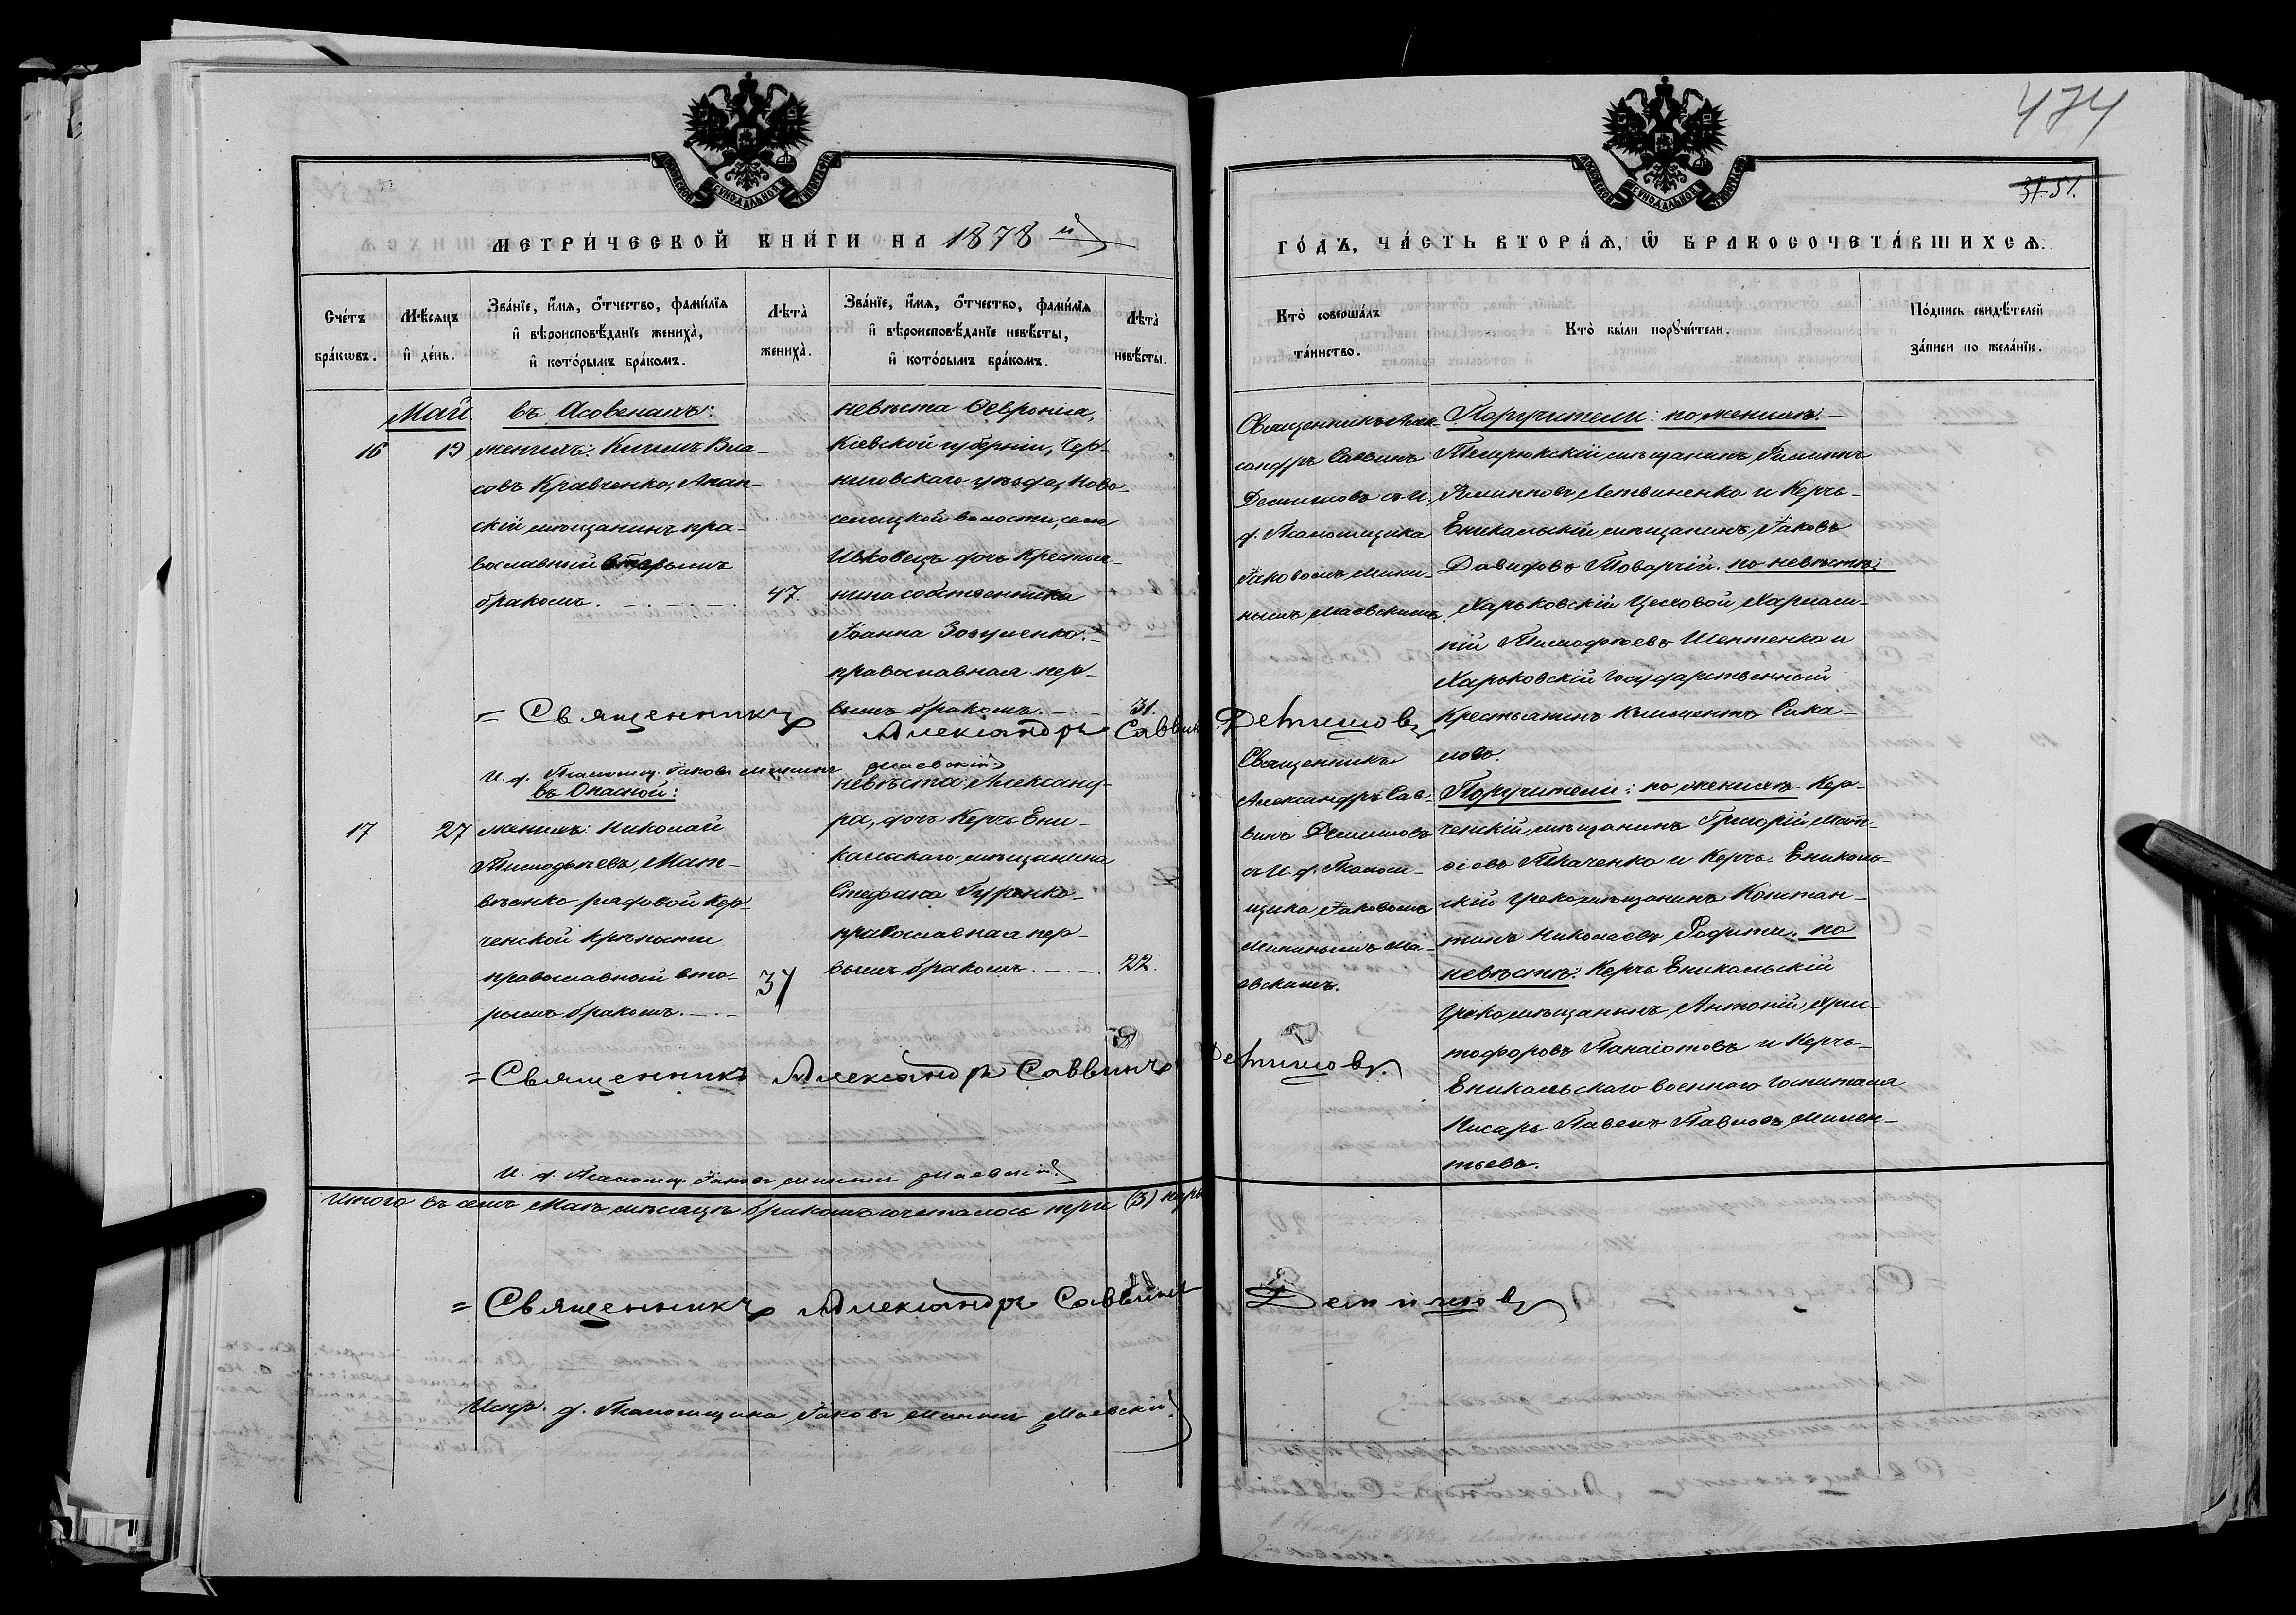 474
31. 51.
МЕТРИ́ЧЕСКОЙ КНИ́ГИ НА 1878 й
ГО́ДЪ, ЧА́СТЬ ВТОРА́Ѧ, Ѡ БРАКОСОЧЕТА́ВШИХСѦ.
Сче́тъ
бра́кѡвъ.
Мѣ́сяцъ
и̂ де́нь.
Зва́нїе, и̂́мѧ, о̂́тчество, фами́лїѧ
и̂ вѣроисповѣ́данїе жениха̀,
и̂ кото́рымъ бра́комъ.
Лѣта̀
жениха̀.
Зва́нїе, и̂́мѧ, о̂́тчество, фами́лїѧ
и̂ вѣроисповѣ́данїе невѣ́сты,
и̂ кото́рымъ бра́комъ.
Лѣта̀
невѣ́сты.
Кто̀ соверша́лъ
та́инство.
Кто̀ бы́ли порꙋчи́тели.
По́дпись свидѣ́телей
за́писи по жела́нїю.
Май
въ Асовенахъ:
16
19
женихъ: Киримъ Вла-
совъ Кравченко, Анап-
скій мѣщанинъ пра-
вославный вторымъ
бракомъ.
47.
невѣста Февронія,
Кіевской губерніи, Чер-
ниговскаго уѣзда, Ново-
селицкой волости, села
Ивковецъ дочь крестья-
нина собственника
Іоанна Зозуленко.-
православная пер-
вымъ бракомъ.
31.
Священникъ Алек-
сандръ Саввинъ
Демишовъ съ И.
д. Псаломщика
Іаковомъ Мини-
нымъ Маевскимъ.
Поручители: по женихѣ:-
Темрюкскій мѣщанинъ Филиппъ
Филипповъ Литвиненко и Керчь-
Еникальскій мѣщанинъ, Іаковъ
Давидовъ Товарчій. по невѣстѣ:
Харьковскій Цеховой Харлам-
пій Тимофѣевъ Шептенко и
Харьковскій Государственный
Крестьянинъ Климентъ Сика-
ловъ.
= Священникъ Александръ Саввинъ Демишовъ
И. д. Псаломщ. Іаковъ Мининъ Маевскій
въ Опасной:
17
27
женихъ: Николай
Тимофѣевъ Мат-
вѣенко рядовой Кер-
ченской крѣпости
православный вто-
рымъ бракомъ.
37
невѣста: Александ-
ра, дочь Керчь Ени-
кальскаго мѣщанина
Стефана Гуренко-
православная пер-
вымъ бракомъ.
22.
Священникъ
Александръ Сав-
винъ Демишовъ
съ И. д. Псалом-
щика Іаковомъ
Мининымъ Ма-
евскимъ.
Поручители: по женихѣ. Кер-
ченскій мѣщанинъ Григорій Мат-
ѳіевъ Ткаченко и Керчь-Еникаль-
скій грекомѣщанинъ Констан-
тинъ Николаевъ Рафити. по
невѣстѣ: Керчь Еникальскій
грекомѣщанинъ Антоній Хрис-
тофоровъ Панаіотовъ и Керчь-
Еникальскаго военнаго Госпиталя
Писарь Павелъ Павловъ Милен-
тьевъ.
= Священникъ Александръ Саввинъ Демишовъ.
И. д. Псаломщ. Іаковъ Мининъ Маевскій
Итого въ семъ Маѣ мѣсяцѣ бракомъ сочеталось три (3) пары
= Священникъ Александръ Саввинъ Демишовъ
Испр. д. Псаломщика Іаковъ Мининъ Маевскій